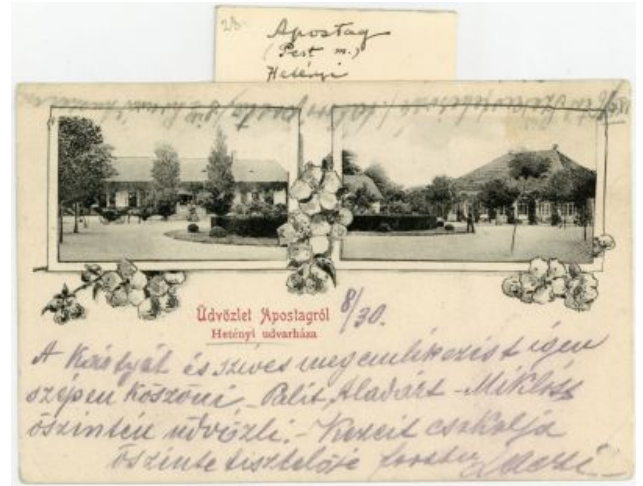 28.
Apostag
(Pest m.)
Hetényi
Üdvözlet Apostagról
Hetényi udvarháza
8/30.
A Kártyát és szíves megemlékezést igen
szépen köszöni – Palit, Aladárt – Miklóst
őszintén üdvözli. – Kezeit csókolja
őszinte tisztelője Laczi